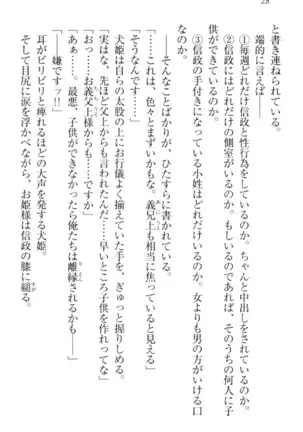 28
と書き連ねられている。
端的に言えば――
①毎週どれだけ信政と性行為をしているのか。ちゃんと中出しをされているのか。
②信政にはどれだけの側室がいるのか。もしいるのであれば、そのうちの何人に子
供ができているのか。
③信政の手付きになっている小姓はどれだけいるのか。女よりも男の方がいける口
なのか。
――そんなことばかりが、ひたすらに書かれている。
「……これは、色々とまずいな。義兄上も相当に焦っていると見える」
「そうなんです……」
犬姫は自らの太股の上にお行儀よく揃えていた手を、ぎゅっと握りしめる。
「実は、先ほど父上からも言われたんだ……早いところ子供を作れってな」
「おっ……お義父上様からも……ですか……」
「ああ……。最悪、子供ができなかったら俺たちは離縁されるかも――」
「――嫌ですッ!!」
耳がビリビリと痺れるほどの大声を発する犬姫。
そして目尻に涙を浮かべながら、お姫様は信政の膝に縋る。